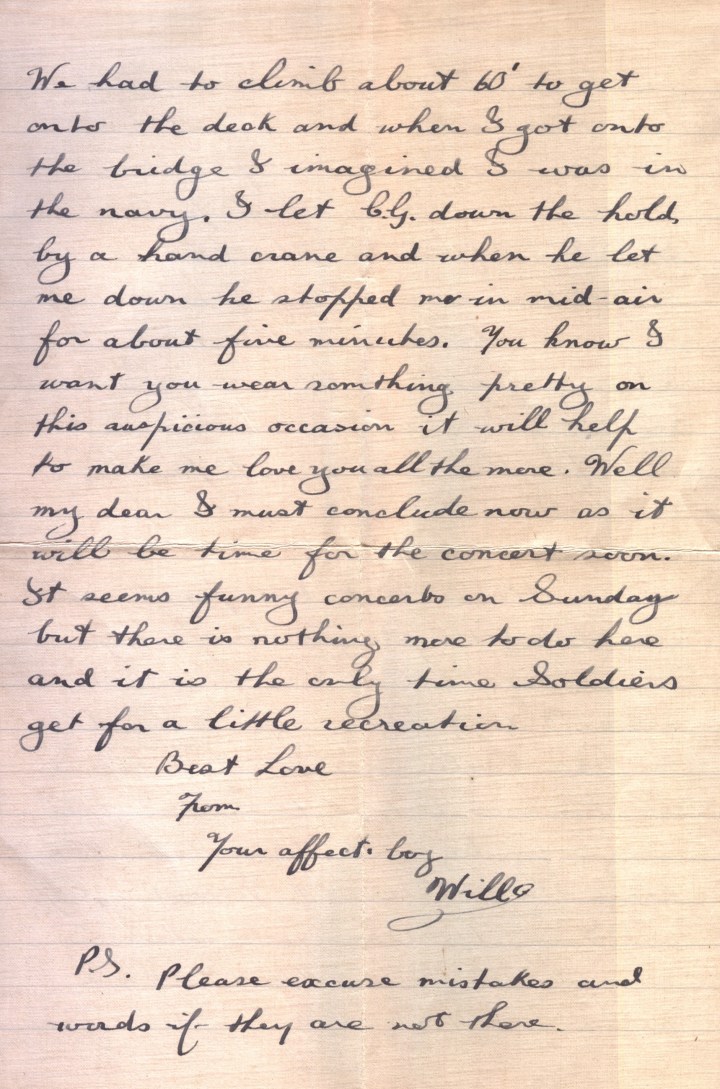 We had to climb about 60' to get
onto the deck and when I got onto
the bridge I imagined I was in
the navy. I let C.G. down the hold
by a hand crane and when he let
me down he stopped me in mid-air
for about five minutes. You know I
want you wear somthing pretty on
this auspicious occasion it will help
to make me love you all the more. Well
my dear I must conclude now as it
will be time for the concert soon.
It seems funny concerts on Sunday
but there is nothing more to do here
and it is the only time Soldiers
get for a little recreation
Best Love
From
Your affect. boy
Will
P.S. Please excuse mistakes and
words if they are not there.